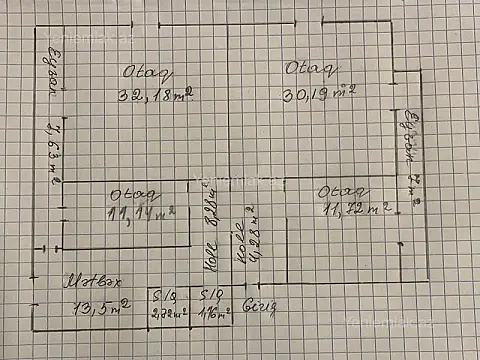 Otaq
32,18 m²
Otaq
30,19 m²
Eyvan
7,63 m²
Eyvan
7 m²
Otaq
11,14 m²
Otaq
11,72 m²
Hole 8,28 m²
Hole
4,28 m²
Mətbəx
13,5 m²
S/Q
2,72 m²
S/Q
1,76 m²
Giriş
Yeniemlak.az
Yeniemlak.az
Yeniemlak.az